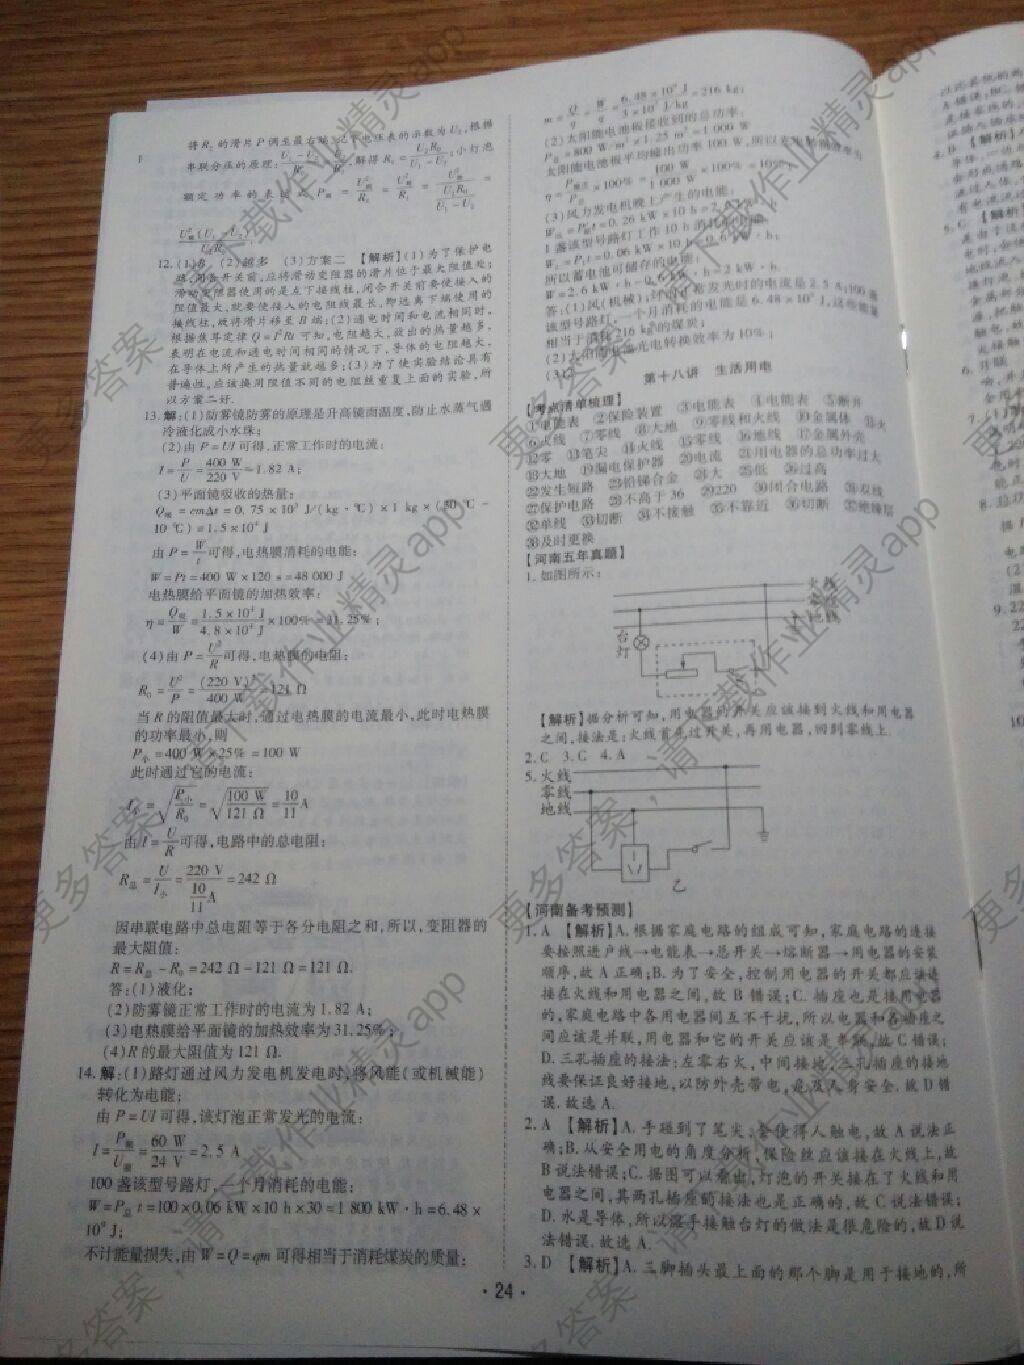 将R₀的滑片P调至最右端,记下电压表的示数为U₂,根据
串联分压的原理:
额定功率的表达式P额=
12.(1)B (2)越多 (3)方案二 【解析】(1)为了保护电
路,闭合开关前,应将滑动变阻器的滑片位于最大阻值处;
滑动变阻器使用的是左下接线柱,闭合开关前要使接入的
阻值最大,就要使接入的电阻线最长,即远离下端使用的
接线柱,故将滑片移至B端;(2)通电时间和电流相同时,
根据焦耳定律Q=I²Rt可知,电阻越大,放出的热量越多,
表明在电流和通电时间相同的情况下,导体的电阻越大,
在导体上所产生的热量就越多;(3)为了使实验结论具有
普遍性,应该换用阻值不同的电阻丝重复上面的实验,所
以方案二好.
13.解:(1)防雾镜防雾的原理是升高镜面温度,防止水蒸气遇
冷液化成小水珠;
(2)由P=UI可得,正常工作时的电流:
I=P/U=400 W/220 V≈1.82 A;
(3)平面镜吸收的热量:
Q吸=cmΔt=0.75×10³ J/(kg·℃)×1 kg×(30 ℃-
10 ℃)=1.5×10⁴ J
由P=W/t可得,电热膜消耗的电能:
W=Pt=400 W×120 s=48 000 J
电热膜给平面镜的加热效率:
η=Q吸/W=1.5×10⁴ J/4.8×10⁴ J×100%=31.25%;
(4)由P=U²/R可得,电热膜的电阻:
R₀=U²/P=(220 V)²/400 W=121 Ω
当R的阻值最大时,通过电热膜的电流最小,此时电热膜
的功率最小,则
P小=400 W×25%=100 W
此时通过它的电流:
I小=√(P小/R₀)=√(100 W/121 Ω)=10/11 A
由I=U/R可得,电路中的总电阻:
R总=U/I小=220 V/(10/11 A)=242 Ω
因串联电路中总电阻等于各分电阻之和,所以,变阻器的
最大阻值:
R=R总-R₀=242 Ω-121 Ω=121 Ω.
答:(1)液化;
(2)防雾镜正常工作时的电流为1.82 A;
(3)电热膜给平面镜的加热效率为31.25%;
(4)R的最大阻值为121 Ω.
14.解:(1)路灯通过风力发电机发电时,将风能(或机械能)
转化为电能;
由P=UI可得,该灯泡正常发光的电流:
I=P额/U额=60 W/24 V=2.5 A
100盏该型号路灯,一个月消耗的电能:
W=P总t=100×0.06 kW×10 h×30=1 800 kW·h=6.48×
10⁹ J;
不计能量损失,由W=Q=qm可得相当于消耗煤炭的质量:
m=Q/q=W/q=6.48×10⁹ J/3×10⁷ J/kg=216 kg;
(2)太阳能电池板接收到的总功率:
P总=800 W/m²×1.25 m²=1 000 W
太阳能电池板平均输出功率100 W,所以
×100%=100 W/1 000 W×100%=10%;
(3)风力发电机晚上产生的电能:
1盏该型号路灯工作10 h消耗的电能:
W₁=P₁t=0.06 kW×10 h=0.6 kW·h;
所以蓄电池可储存的电能:
W=2.6 kW·h-0.6 kW·h=2 kW·h.
答:(1)风(机械);
该型号路灯,一个月消耗的电能是6.48×10⁹ J,这些能量
相当于消耗216 kg的煤炭;
(2)太阳能电池光电转换效率为10%;
第十八讲 生活用电
【考点清单梳理】
①电能表 ②保险装置 ③电能表 ④电能表 ⑤断开
⑥火线 ⑦零线 ⑧大地 ⑨零线和火线 ⑩金属体 ⑪火
⑫零 ⑬笔尖 ⑭火线 ⑮零线 ⑯地线 ⑰金属外壳
⑱大地 ⑲漏电保护器 ⑳电流 ㉑用电器的总功率过大
㉒发生短路 ㉓铅锑合金 ㉔大 ㉕低 ㉖过高
㉗保护电路 ㉘不高于36 ㉙220 ㉚闭合电路 ㉛双线
㉜单线 ㉝切断 ㉞不接触 ㉟不靠近 ㊱切断 ㊲绝缘层
㊳及时更换
【河南五年真题】
1.如图所示:
火线
零线
地线
台
灯
【解析】据分析可知,用电器的开关应该接到火线和用电器
之间,接法是:火线首先过开关,再用电器,回到零线上.
2.C 3.C 4.A
5.火线
零线
地线
乙
【河南备考预测】
1.A 【解析】A.根据家庭电路的组成可知,家庭电路的连接
要按照进户线→电能表→总开关→熔断器→用电器的安装
顺序,故A正确;B.为了安全,控制用电器的开关都应该连
接在火线和用电器之间,故B错误;C.插座也是接用电器
的,家庭电路中各用电器间互不干扰,所以电器和各插座之
间应该是并联,用电器和它的开关应该是串联,故C错误;
D.三孔插座的接法:左零右火,中间接地,三孔插座的接地
线要保证良好接地,以防外壳带电,危及人身安全.故D错
误.故选A.
2.A 【解析】A.手碰到了笔尖,会使得人触电,故A说法正
确;B.从安全用电的角度分析,保险丝应该接在火线上,故
B说法错误;C.据图可以看出,灯泡的开关接在了火线和用
电器之间,其两孔插座的接法也是正确的,故C说法错误;
D.水是导体,所以湿手接触台灯的做法是很危险的,故D说
法错误.故选A.
3.D 【解析】A.三脚插头最上面的那个脚是用于接地的,所
·24·
更多答案,请下载作业精灵app